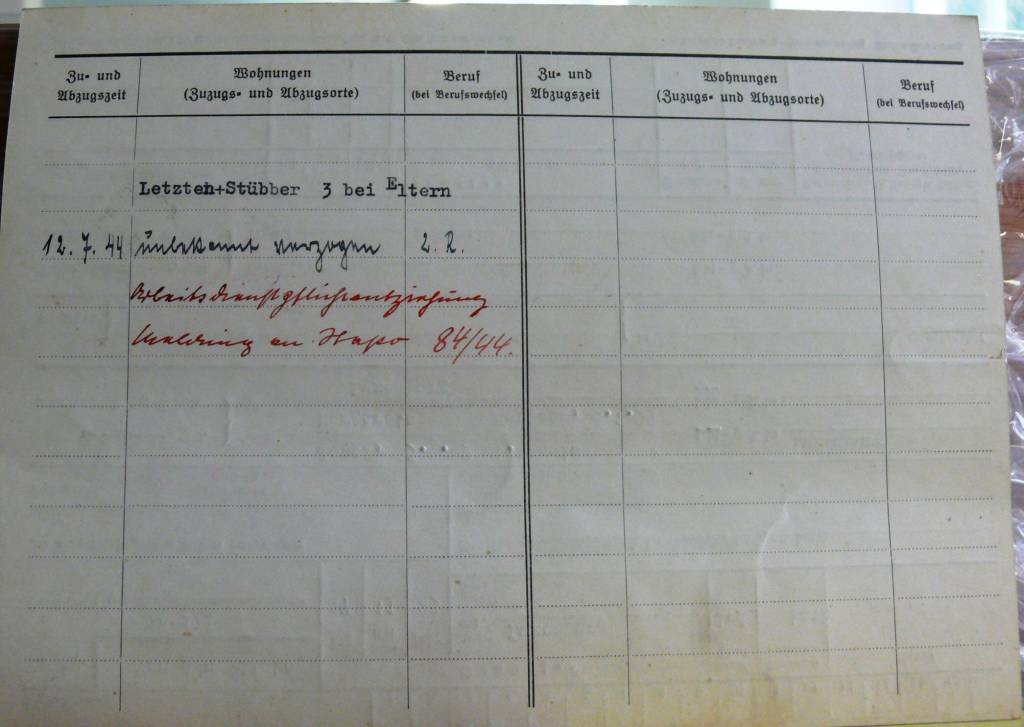 Zu- und Abzugszeit
Wohnungen (Zuzugs- und Abzugsorte)
Beruf (bei Berufswechsel)
Zu- und Abzugszeit
Wohnungen (Zuzugs- und Abzugsorte)
Beruf (bei Berufswechsel)
Letzten+Stübber 3 bei Eltern
12. 7. 44 unbekannt verzogen 2. R.
Arbeitsdienstpflichtentziehung
Meldung an Stapo 84/44.